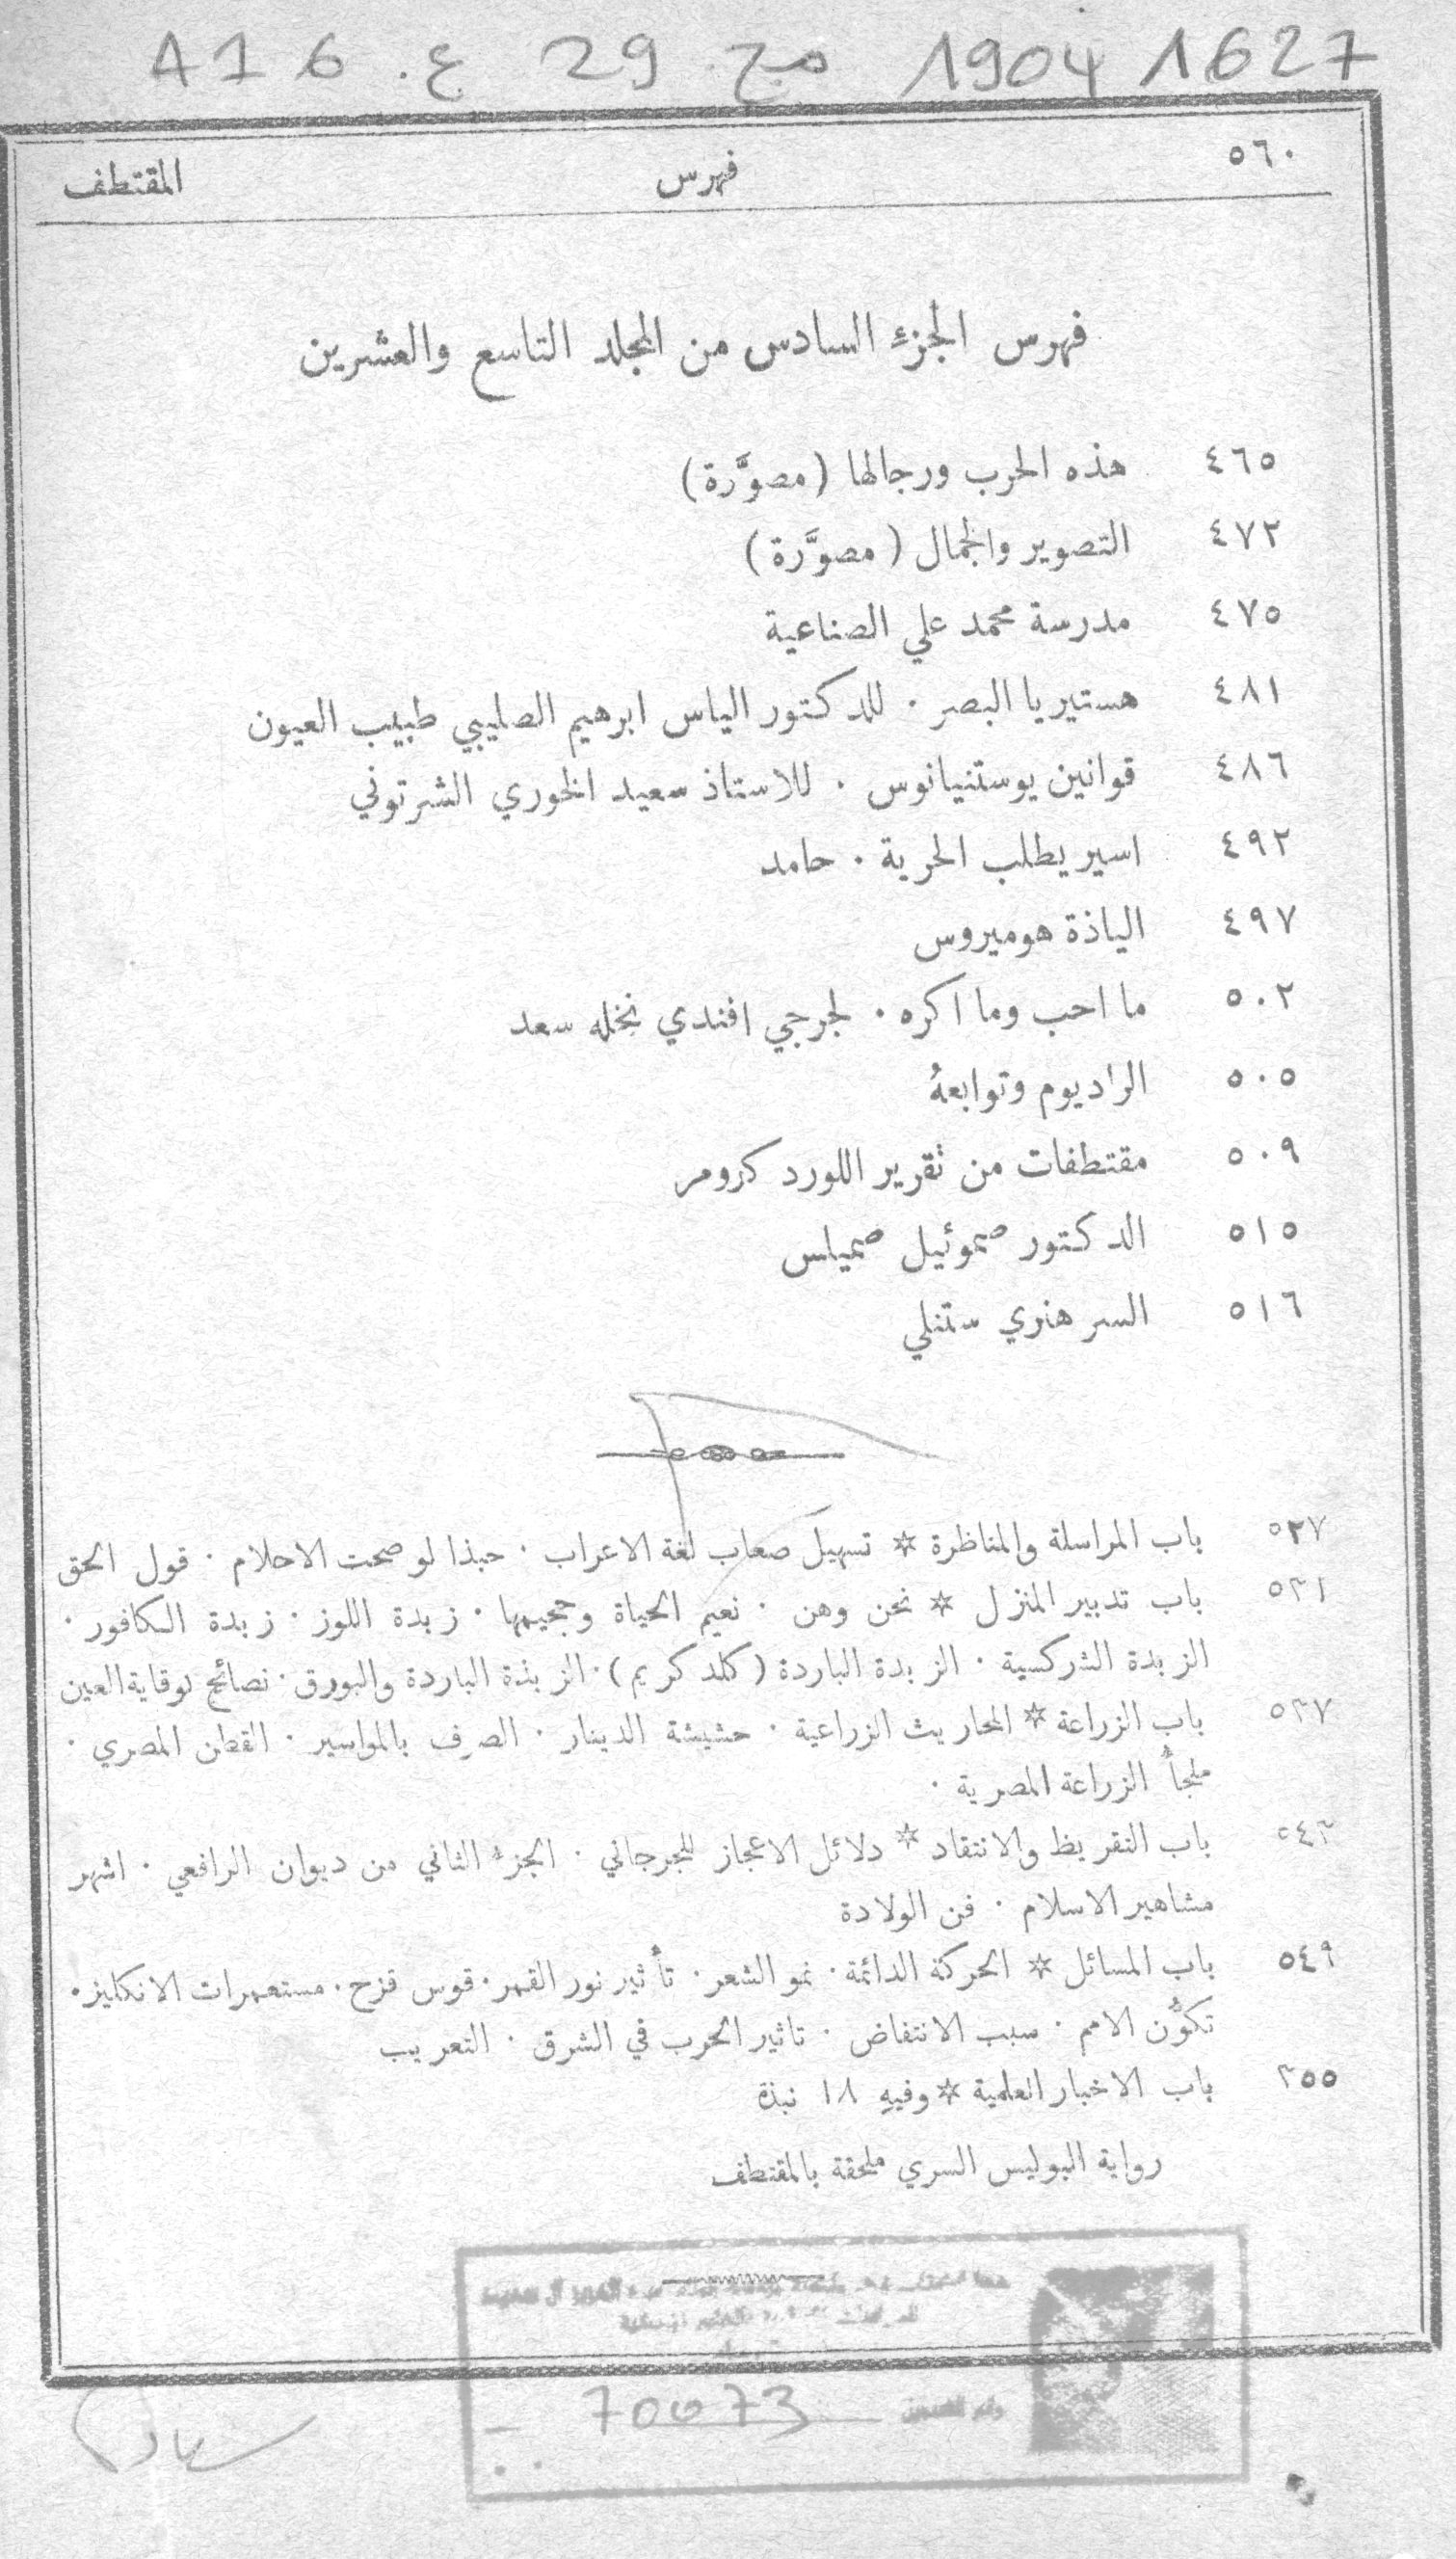 1627 1904 مج. 29 ع. 6
٥٦٠ فهرس المقتطف
فهرس الجزء السادس من المجلد التاسع والعشرين
٤٦٥ هذه الحرب ورجالها (مصوَّرة)
٤٧٢ التصوير والجمال (مصوَّرة)
٤٧٥ مدرسة محمد علي الصناعية
٤٨١ هستيريا البصر . للدكتور الياس ابرهيم الصليبي طبيب العيون
٤٨٦ قوانين يوستنيانوس . للاستاذ سعيد الخوري الشرتوني
٤٩٢ اسير يطلب الحرية . حامد
٤٩٧ الياذة هوميروس
٥٠٢ ما احب وما اكره . لجرجي افندي نخله سعد
٥٠٥ الراديوم وتوابعهُ
٥٠٩ مقتطفات من تقرير اللورد كرومر
٥١٥ الدكتور صموئيل صميلس
٥١٦ السر هنري ستنلي
٥٢٧ باب المراسلة والمناظرة * تسهيل صعاب لغة الاعراب . حبذا لو صحت الاحلام . قول الحق
٥٣١ باب تدبير المنزل * نحن وهن . نعيم الحياة وجحيمها . زبدة اللوز . زبدة الكافور .
الزبدة الشركسية . الزبدة الباردة (كلد كريم) . الزبدة الباردة والبورق . نصائح لوقاية العين
٥٣٧ باب الزراعة * المحاريث الزراعية . حشيشة الدينار . الصرف بالمواسير . القطن المصري .
ملجأ الزراعة المصرية .
٥٤٣ باب التقريظ والانتقاد * دلائل الاعجاز للجرجاني . الجزء الثاني من ديوان الرافعي . اشهر
مشاهير الاسلام . فن الولادة
٥٤٩ باب المسائل * الحركة الدائمة . نمو الشعر . تأثير نور القمر . قوس قزح . مستعمرات الانكليز .
تكوُّن الامم . سبب الانتفاض . تاثير الحرب في الشرق . التعريب
٥٥٣ باب الاخبار العلمية * وفيهِ ١٨ نبذة
رواية البوليس السري ملحقة بالمقتطف
70073